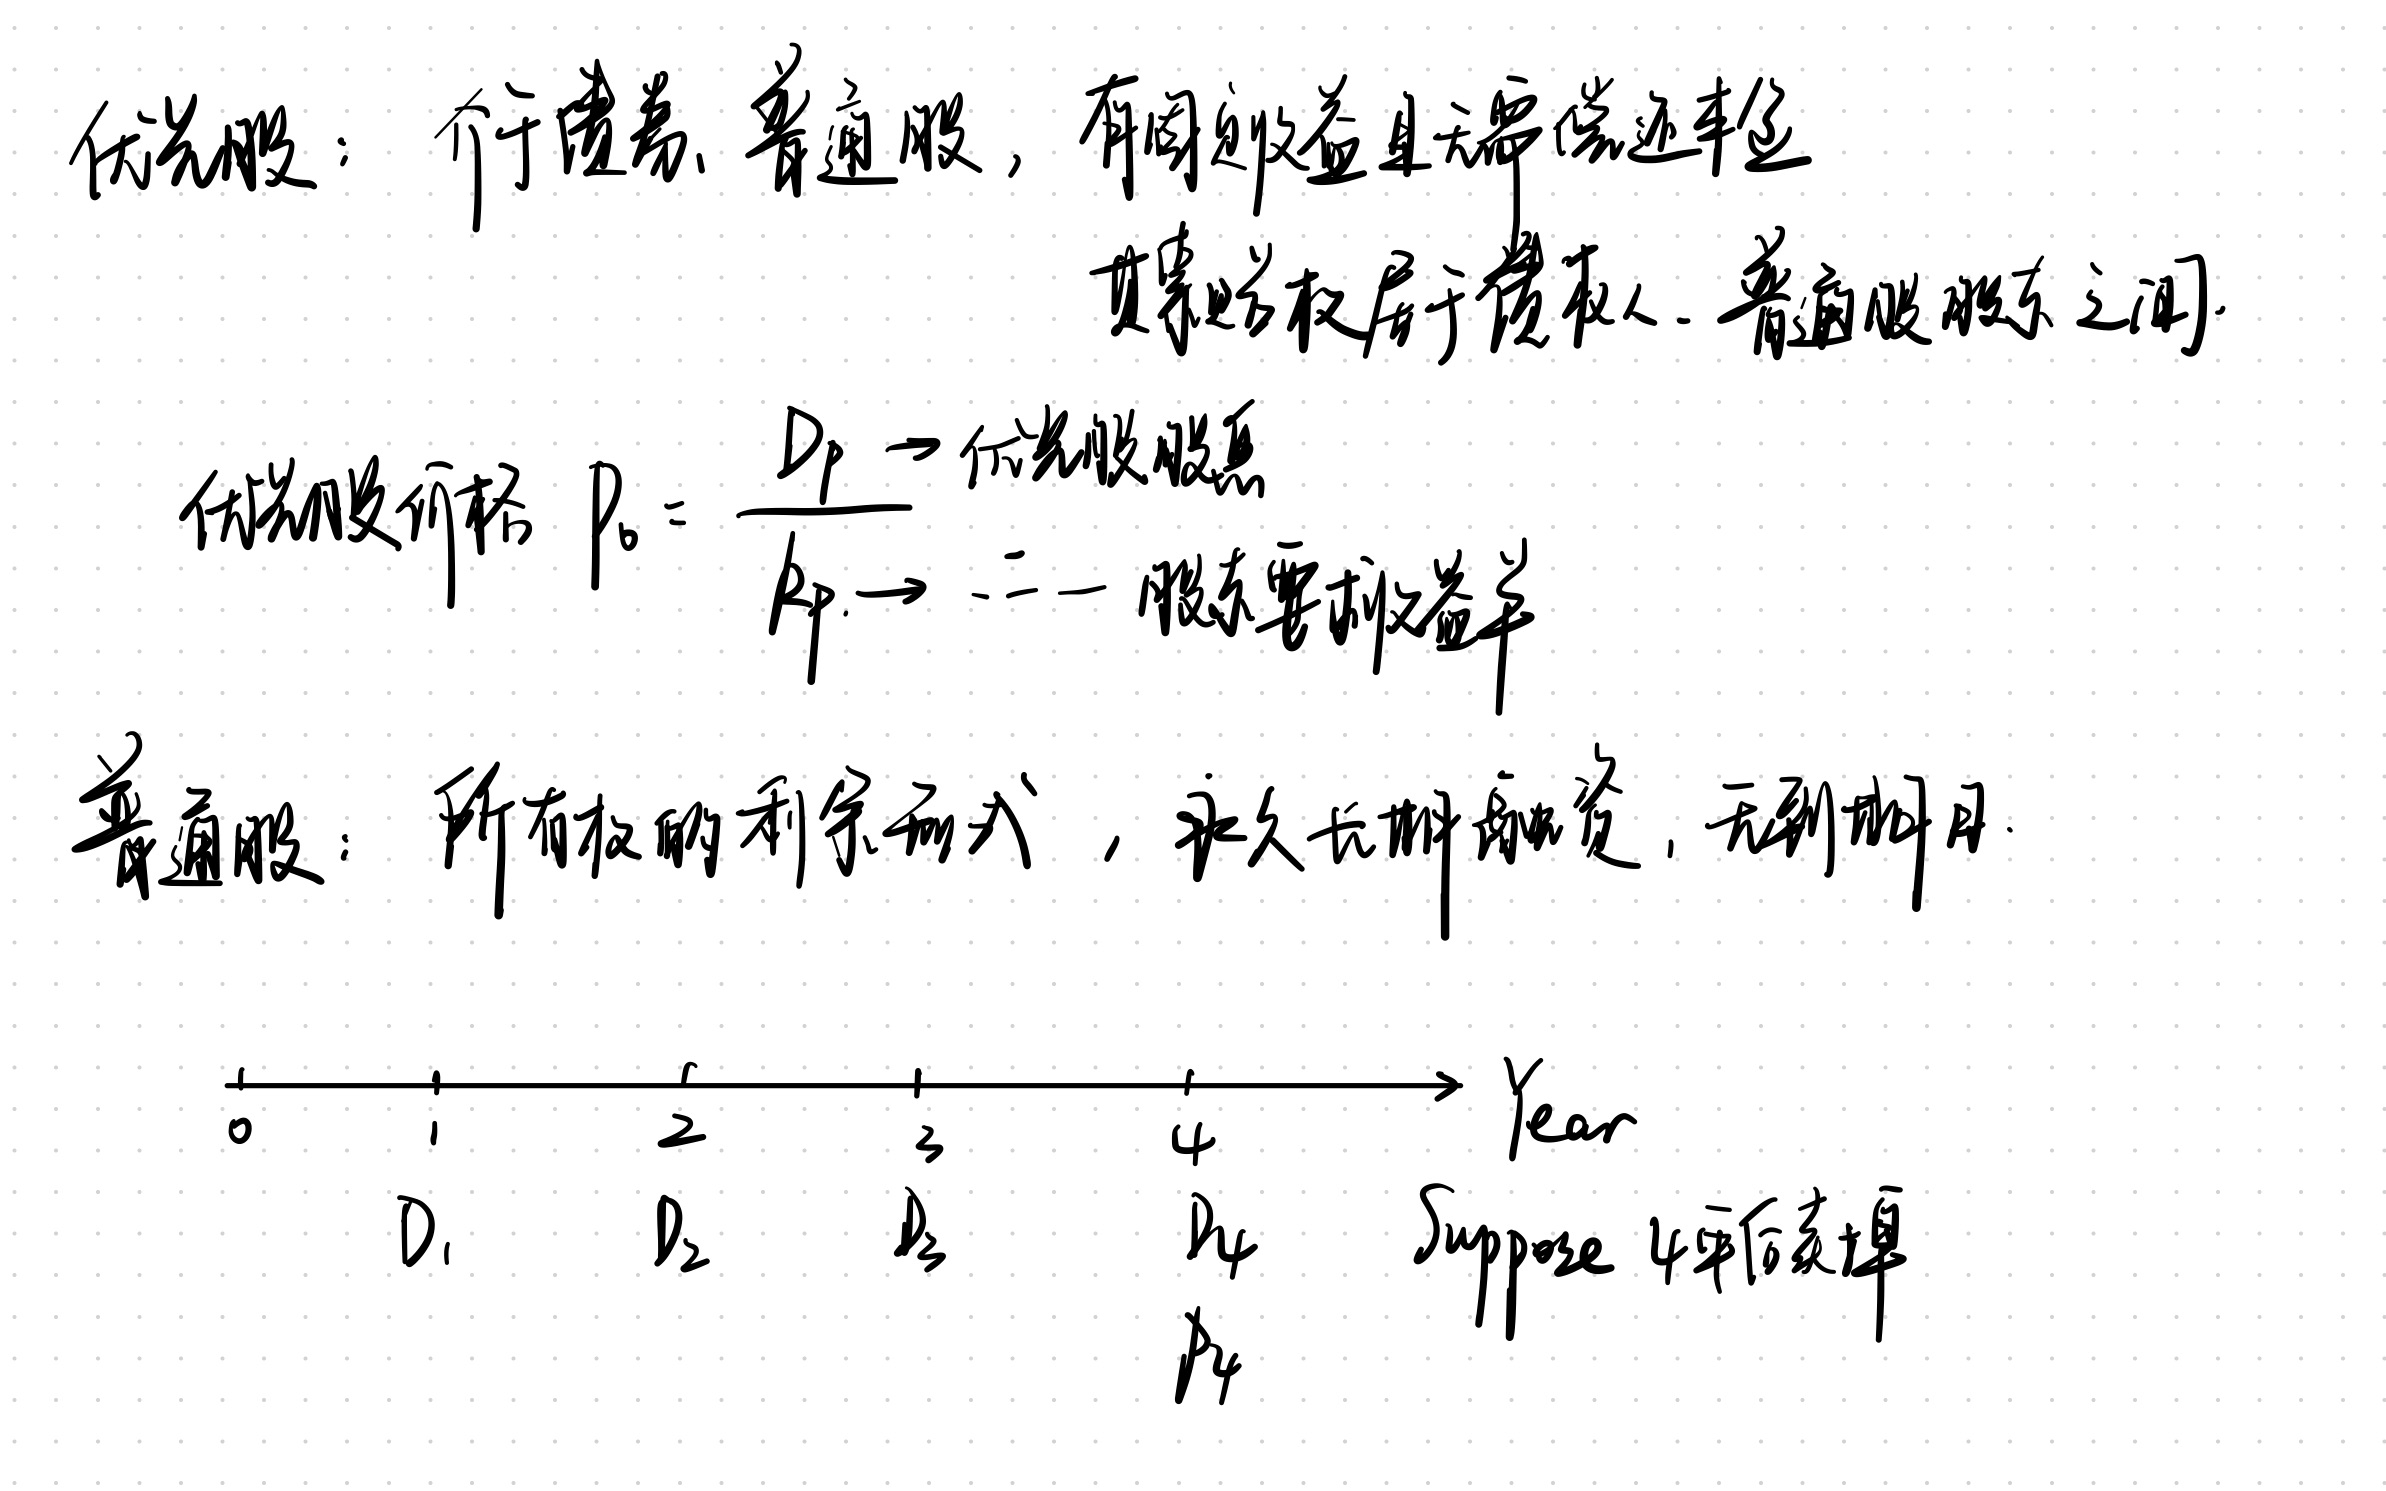 优先股：介于债券、普通股，有固定收益且无需偿还本金
其索偿权居于债权人、普通股股东之间.
优先股价格 P₀ = Dₚ → 优先股股息
Rₚ. → 股东要求收益率
普通股：所有权的利息方式，永久长期融资，无到期日.
0 1 2 3 4 Year
D₁ D₂ D₃ D₄ Suppose 4年后卖掉
P₄